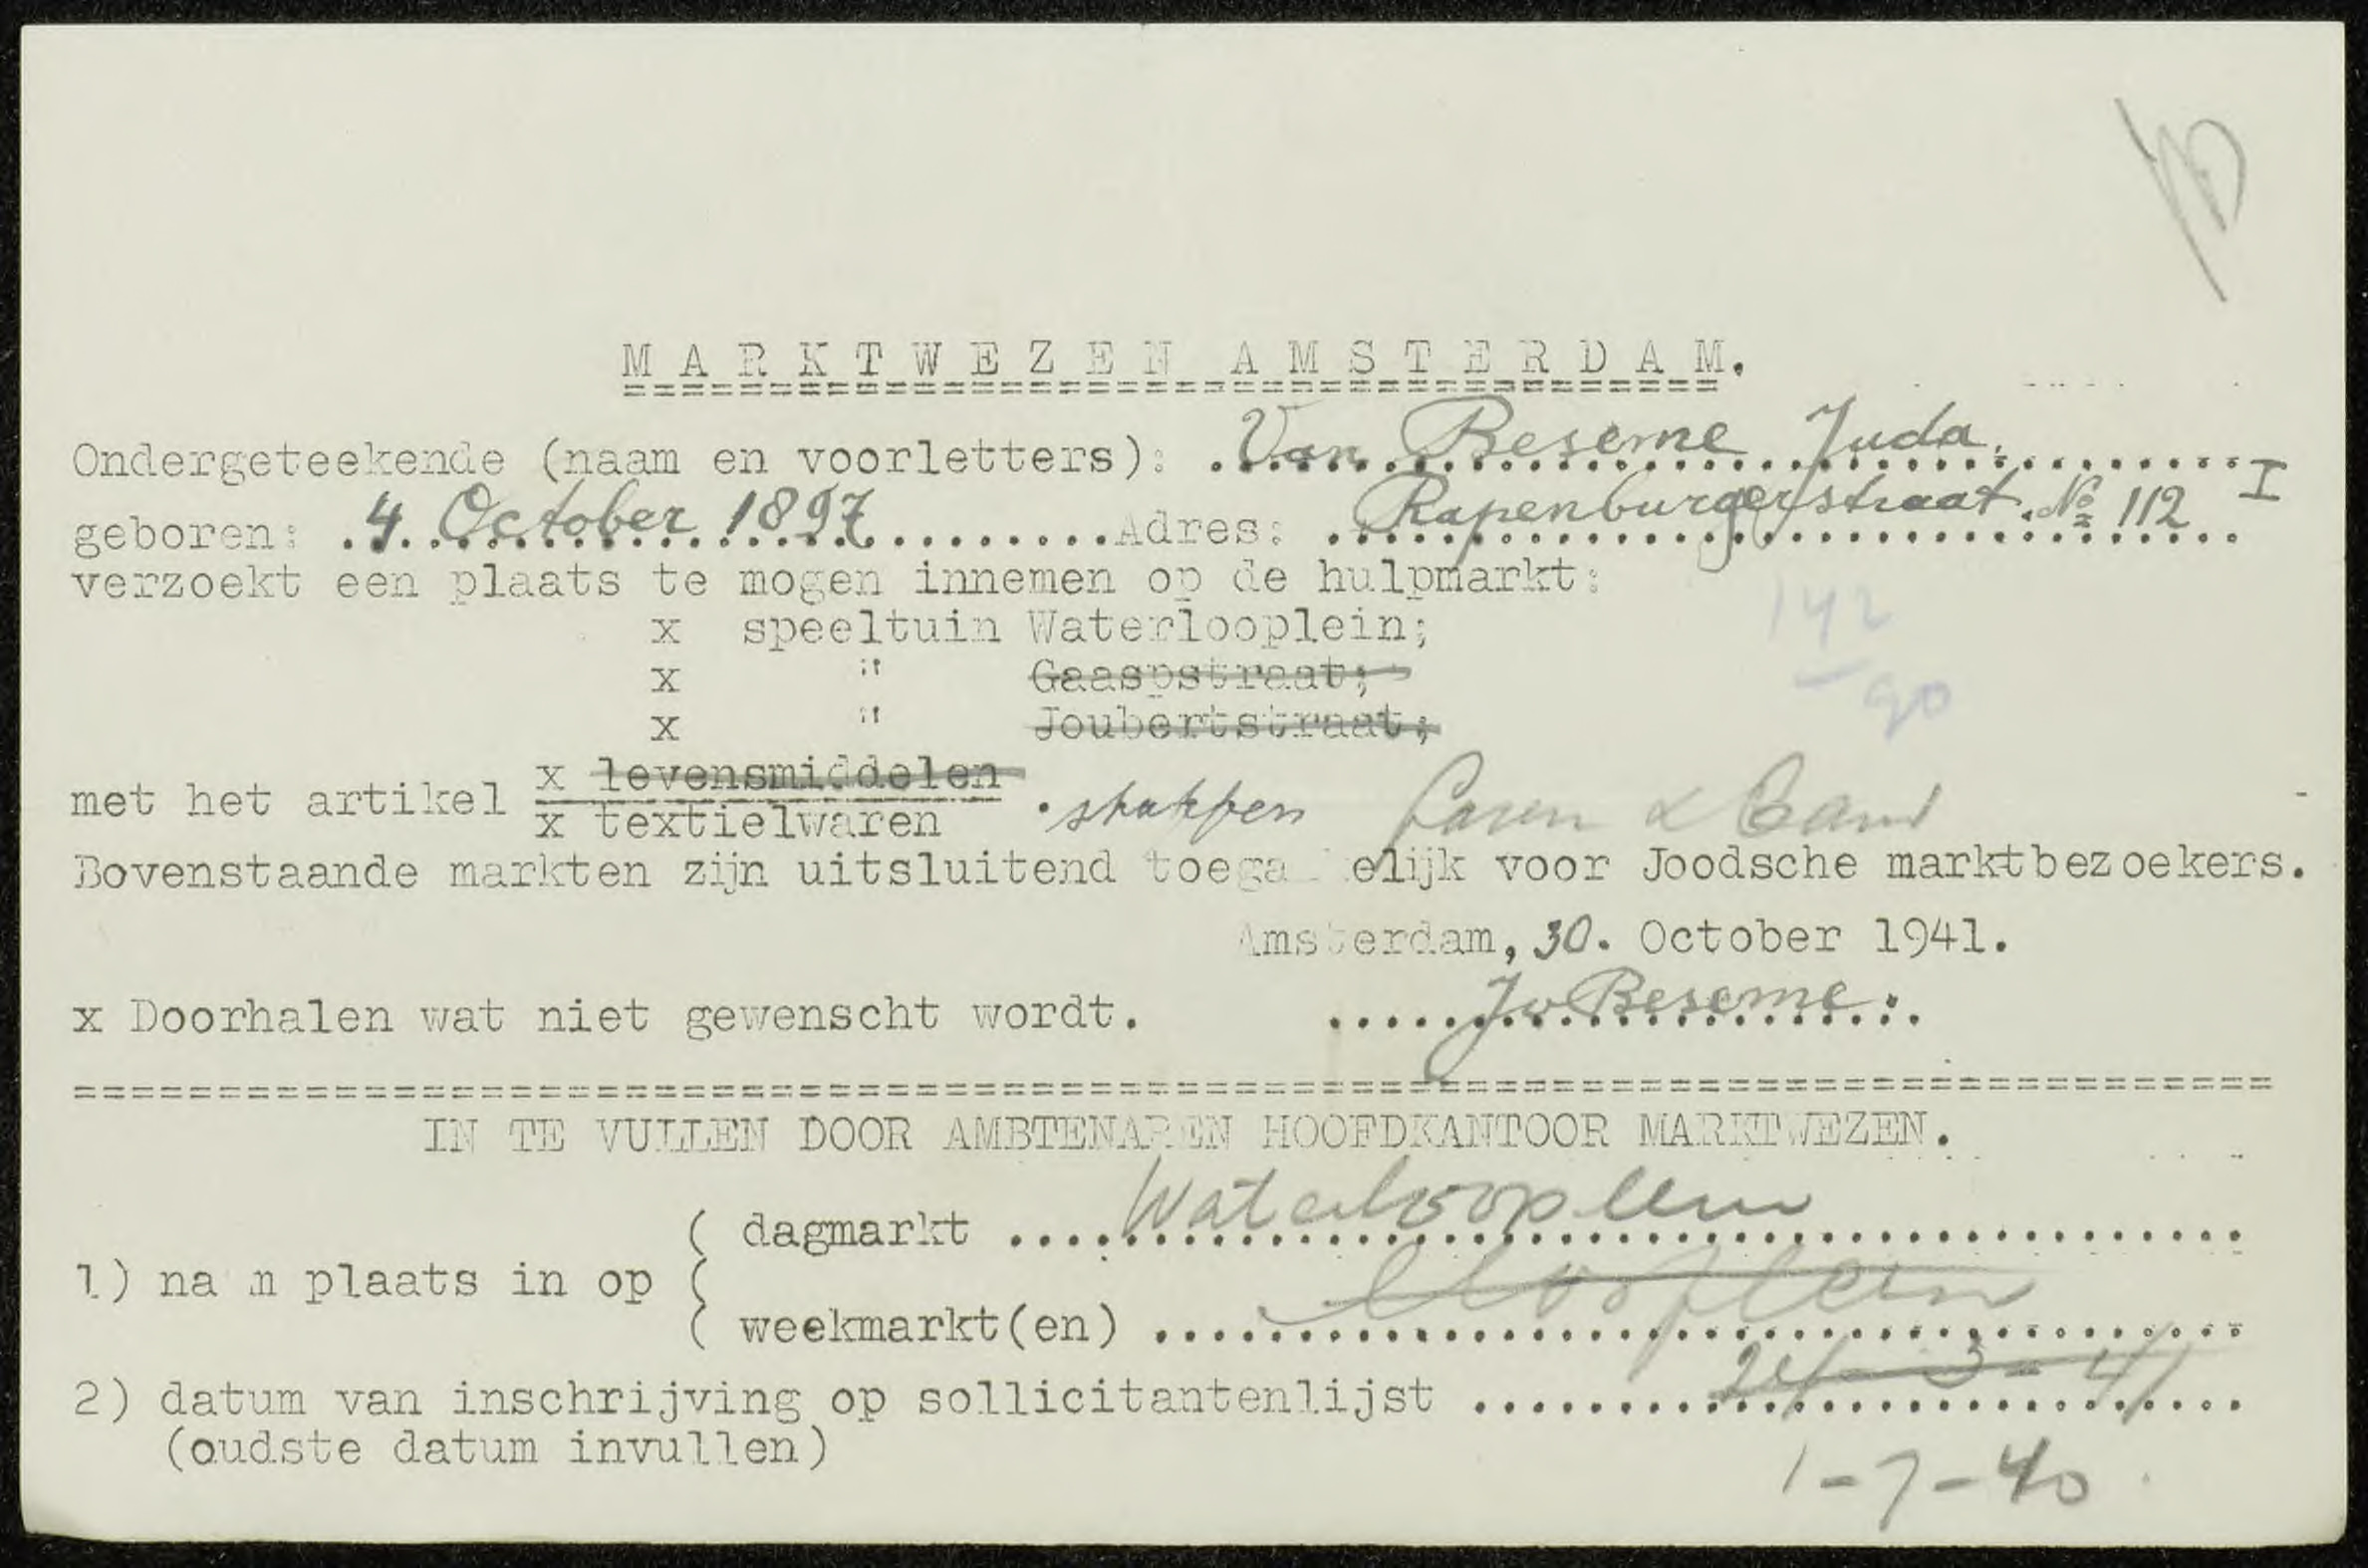 MARKTWEZEN AMSTERDAM.
Ondergeteekende (naam en voorletters): Van Beseme Juda.
geboren: 4 October 1897 Adres: Rapenburgerstraat. No 112 I
verzoekt een plaats te mogen innemen op de hulpmarkt:
142
x speeltuin Waterlooplein;
x " Gaaspstraat;
90
x " Joubertstraat;
x levensmiddelen
met het artikel
x textielwaren
Bovenstaande markten zijn uitsluitend toega elijk voor Joodsche marktbezoekers.
Amsterdam, 30. October 1941.
x Doorhalen wat niet gewenscht wordt. Jv Beseme.
IN TE VULLEN DOOR AMBTENAREN HOOFDKANTOOR MARKTWEZEN.
( dagmarkt Waterlooplein
1) na m plaats in op (
( weekmarkt(en)
2) datum van inschrijving op sollicitantenlijst 24-3-41
(oudste datum invullen)
1-7-40